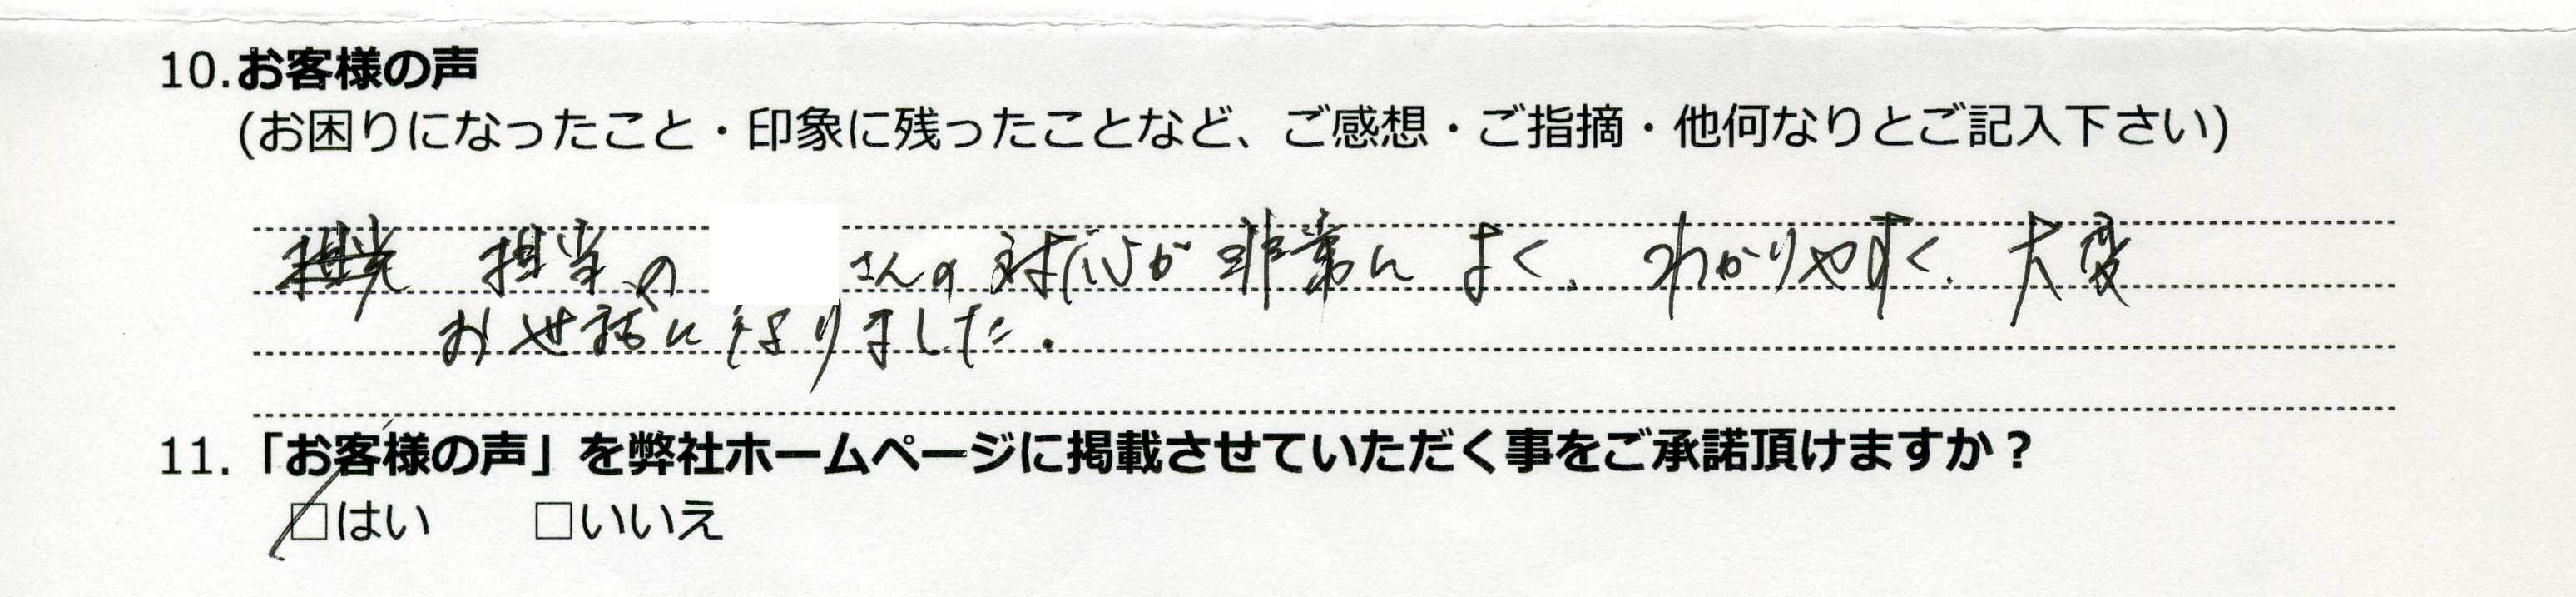 10.お客様の声
(お困りになったこと・印象に残ったことなど、ご感想・ご指摘・他何なりとご記入下さい)
担当の さんの対応が非常によく、わかりやすく、大変
お世話になりました。
11.「お客様の声」を弊社ホームページに掲載させていただく事をご承諾頂けますか？
□はい □いいえ